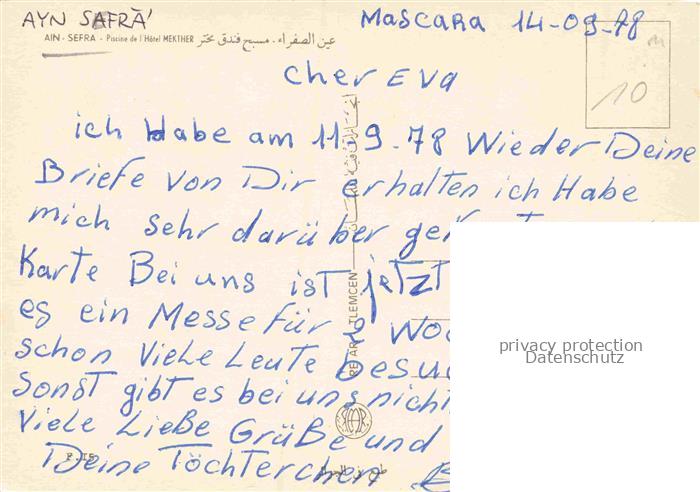 AYN SAFRA'
Mascara 14-09-78
AIN - SEFRA - Piscine de l'Hôtel MEKTHER عين الصفراء . مسبح فندق مختر
10
Cher Eva
ich Habe am 11.9.78 Wieder Deine
Briefe von Dir erhalten ich Habe
mich sehr darüber
Karte Bei uns ist jetzt
es ein Messe für 2
schon Viele Leute
sonst gibt es bei uns nicht
Viele Ließe Grüße und
Deine Töchterchen
TLEMCEN
privacy protection
Datenschutz